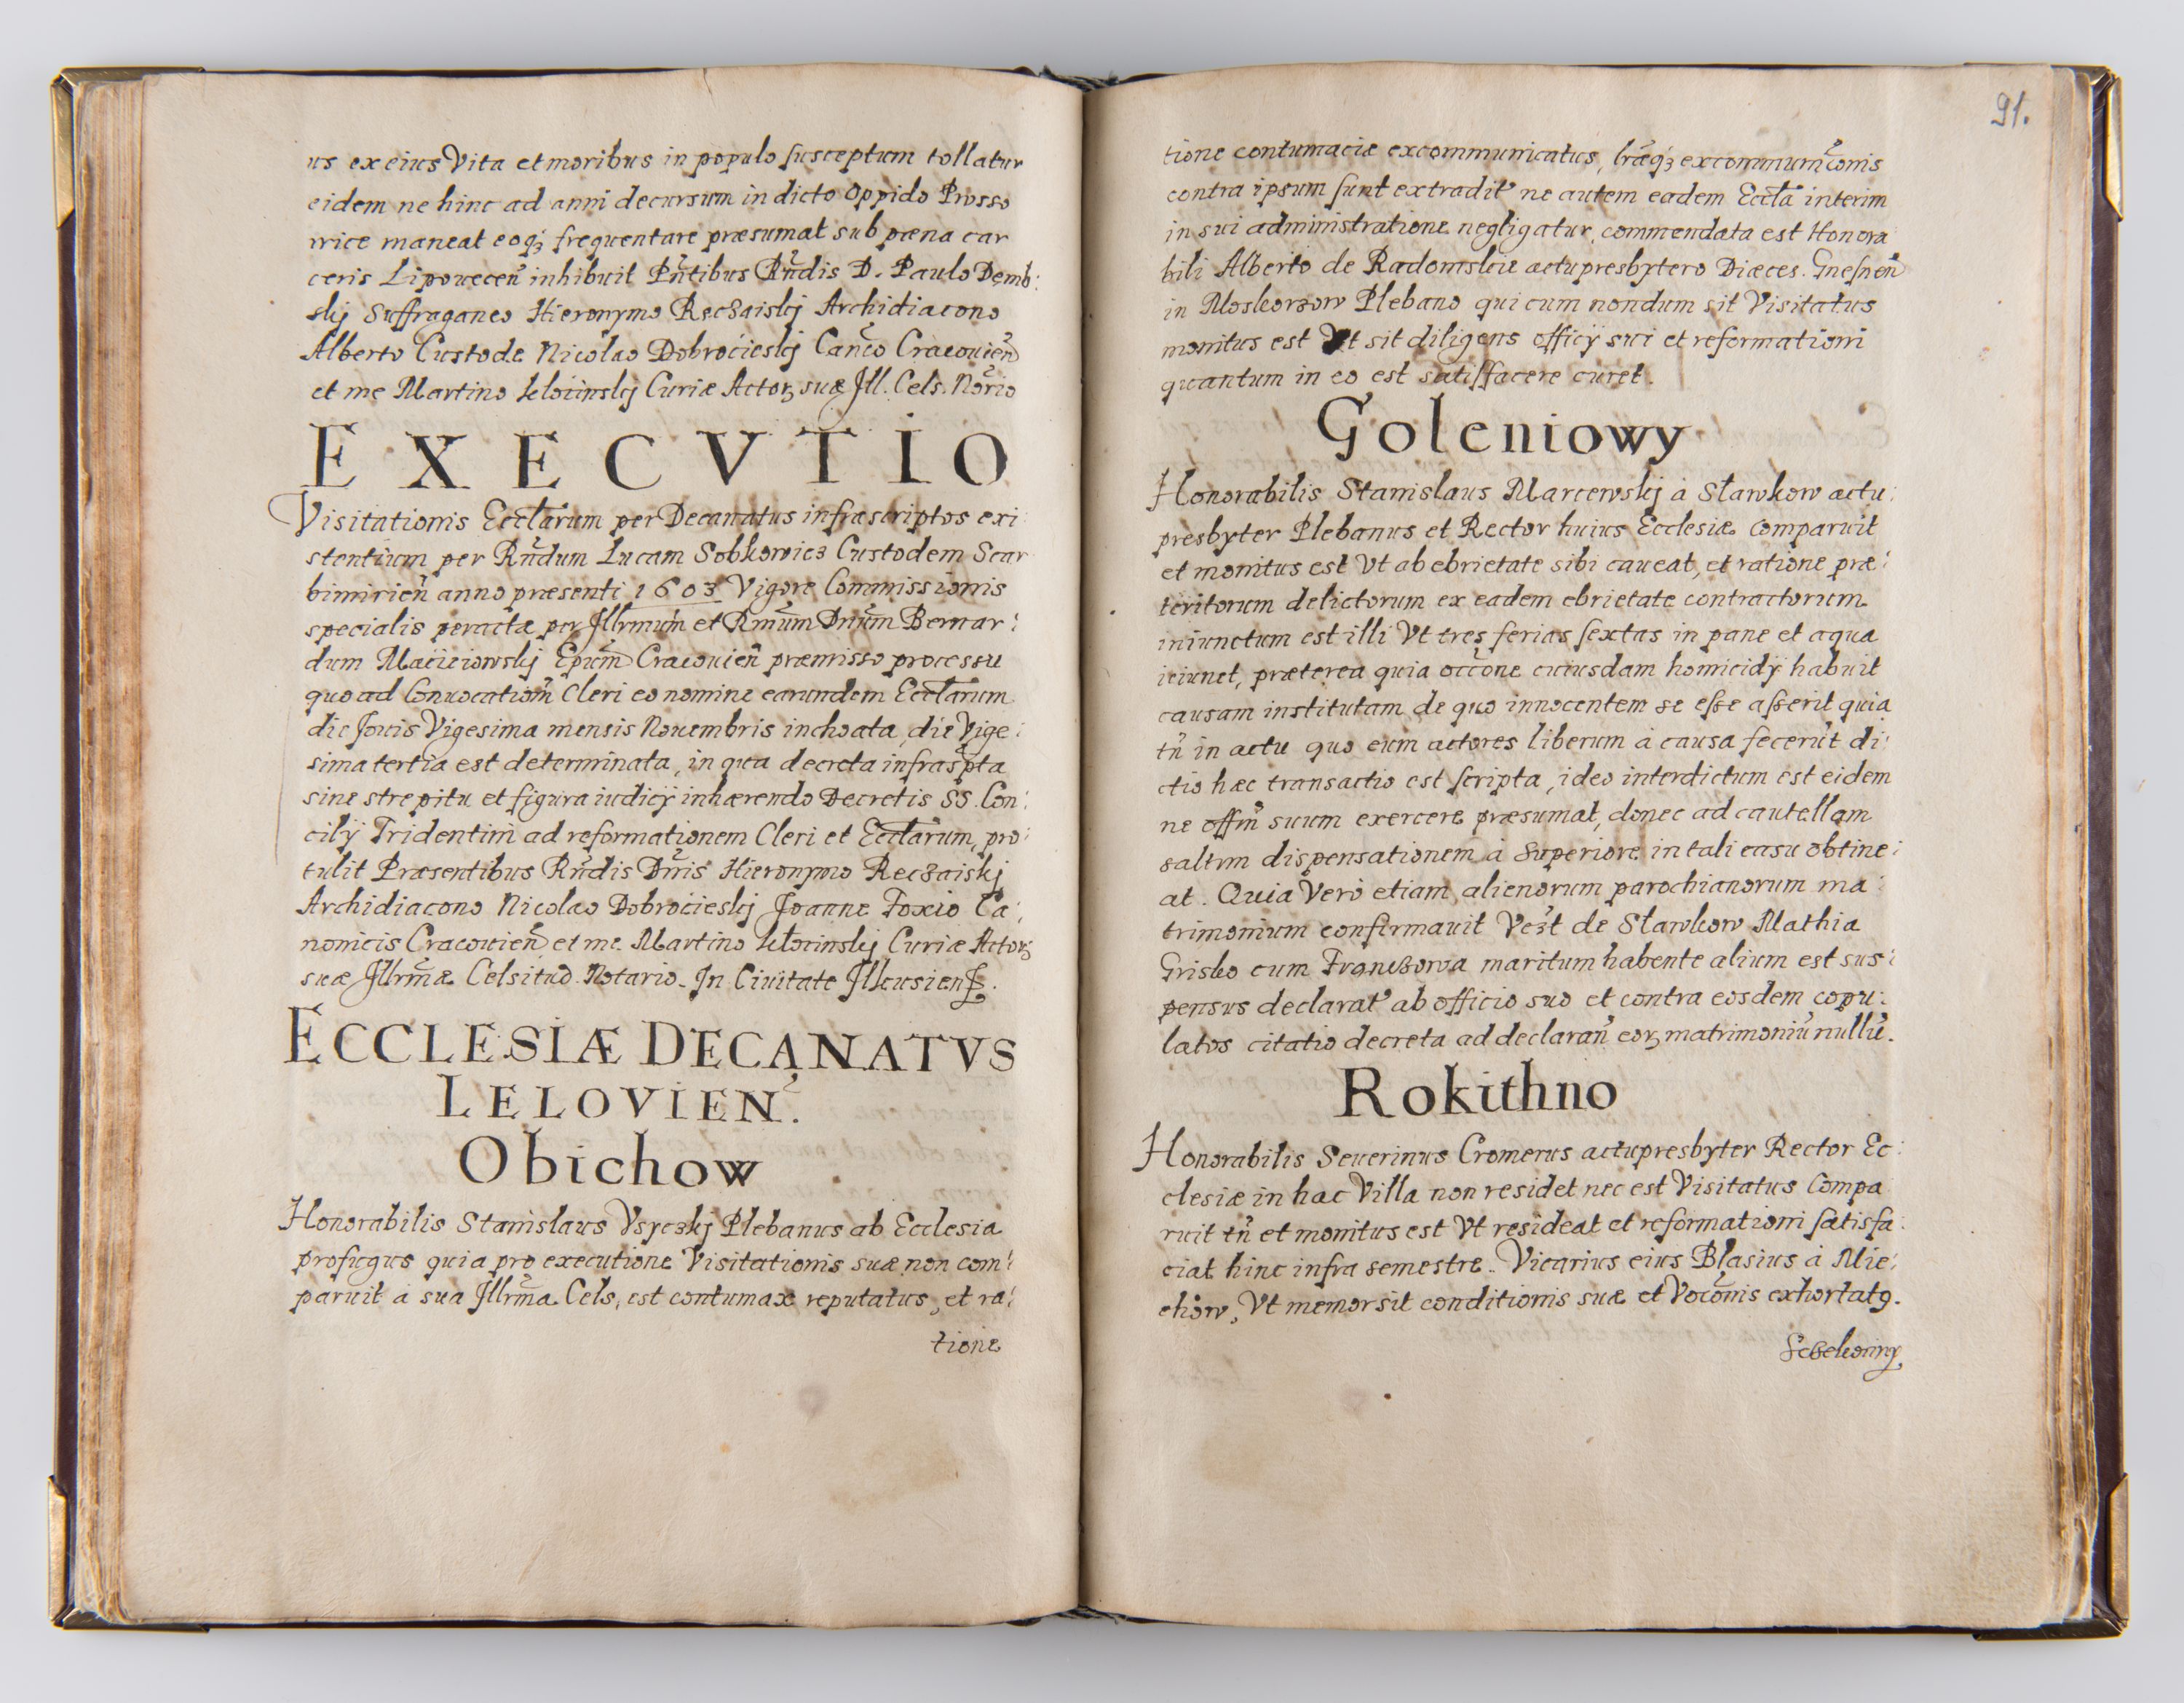 us ex eius Vita et moribus in populo susceptum tollatur
eidem ne hinc ad anni decursum in dicto oppido Prosso
vice maneat eoq₃ frequentare præsumat sub pœna car
ceris Lipoueceñ inhibuit Pñtibus Rñdis D. Paulo Demb:
skj Suffraganeo Hieronymo Reczaiskj Archidiacono
Alberto Custode Nicolao Dobrocieskj Canco Cracouieñ
et me Martino Kłocinskj Curiæ Actoꝝ suæ Jll. Cels. Norio
EXECVTIO
Visitationis Ecclarum per Decanatus infrascriptos exi
stentium per Rñdum Lucam Sobkowicz Custodem Scar
bimirieñ anno præsenti 1603 Vigore Commissionis
specialis peractæ per Jllrmum et Rmum Dnum Bernar:
dum Macieiowskj Epum Cracouieñ præmisso processu
quo ad Conuocationñ Cleri eo nomine earundem Ecclarum
die Jouis Vigesima mensis Nouembris inchoata, die Vige:
sima tertia est determinata, in qua decreta infraspta
sine strepitu et figura iudicij inhærendo Decretis SS. Con:
cilij Tridentini ad reformationem Cleri et Ecclarum, pro:
tulit Præsentibus Rñdis Dnis Hieronymo Reczaiskj
Archidiacono Nicolao Dobrocieskj Joanne Foxio Ca:
nonicis Cracouieñ et me Martino Kłocinskj Curiæ Actoꝝ
suæ Jllrmæ Celsitud. Notario. In Ciuitate Jllcusienß.
ECCLESIÆ DECANATVS
LELOVIEN.
Obichow
Honorabilis Stanislaus Vsyczkj Plebanus ab Ecclesia
profugus quia pro executione Visitationis suæ non com:
paruit a sua Jllrma Cels, est contumax reputatus, et ra:
tione
91.
tione contumaciæ excommunicatus, lræq₃ excommuncionis
contra ipsum sunt extradit' ne autem eadem Eccla interim
in sui administratione negligatur, commendata est Honora
bili Alberto de Radomskie actupresbytero Diæces. Gnesneñ
in Moskorzow Plebano qui cum nondum sit Visitatus
monitus est Vt sit diligens officij sui et reformationi
quantum in eo est satisfacere curet.
Goleniowy
Honorabilis Stanislaus Marcewskj à Sławkow actu:
presbyter Plebanus et Rector huius Ecclesiæ comparuit
et monitus est Vt ab ebrietate sibi caueat, et ratione præ:
teritorum delictorum ex eadem ebrietate contractorum
iniunctum est illi Vt tres ferias sextas in pane et aqua
ieiunet, præterea quia occone cuiusdam homicidij habuit
causam institutam de quo innocentem se esse asserit quia
tñ in actu quo eum actores liberum à causa fecerut di:
ctio hæc transactio est scripta, ideo interdictum est eidem
ne offm suum exercere præsumat, donec ad cautellam
saltim dispensationem à Superiore in tali casu obtine:
at. Quia Verò etiam alienorum parochianorum ma:
trimonium confirmauit Vezt de Sławkow Mathia
Grisko cum Franczowa maritum habente alium est sus:
pensus declarat' ab officio suo et contra eosdem copu:
latos citatio decreta ad declarañ eoꝝ matrimoniũ nullũ.
Rokithno
Honorabilis Seuerinus Cromerus actupresbyter Rector Ec:
clesiæ in hac Villa non residet nec est Visitatus Compa
ruit tñ et monitus est Vt resideat et reformationi satisfa:
ciat hinc infra semestre. Vicarius eius Blasius à Mie:
chow, Vt memor sit conditionis suæ et Vocoñis exhortatꝰ.